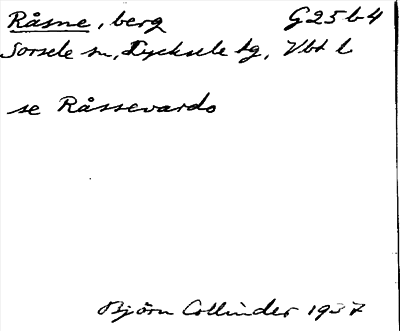 Råsne, berg G25b4
Sorsele sn, Lycksele tg, Vbt l
se Råssevardo
Björn Collinder 1937